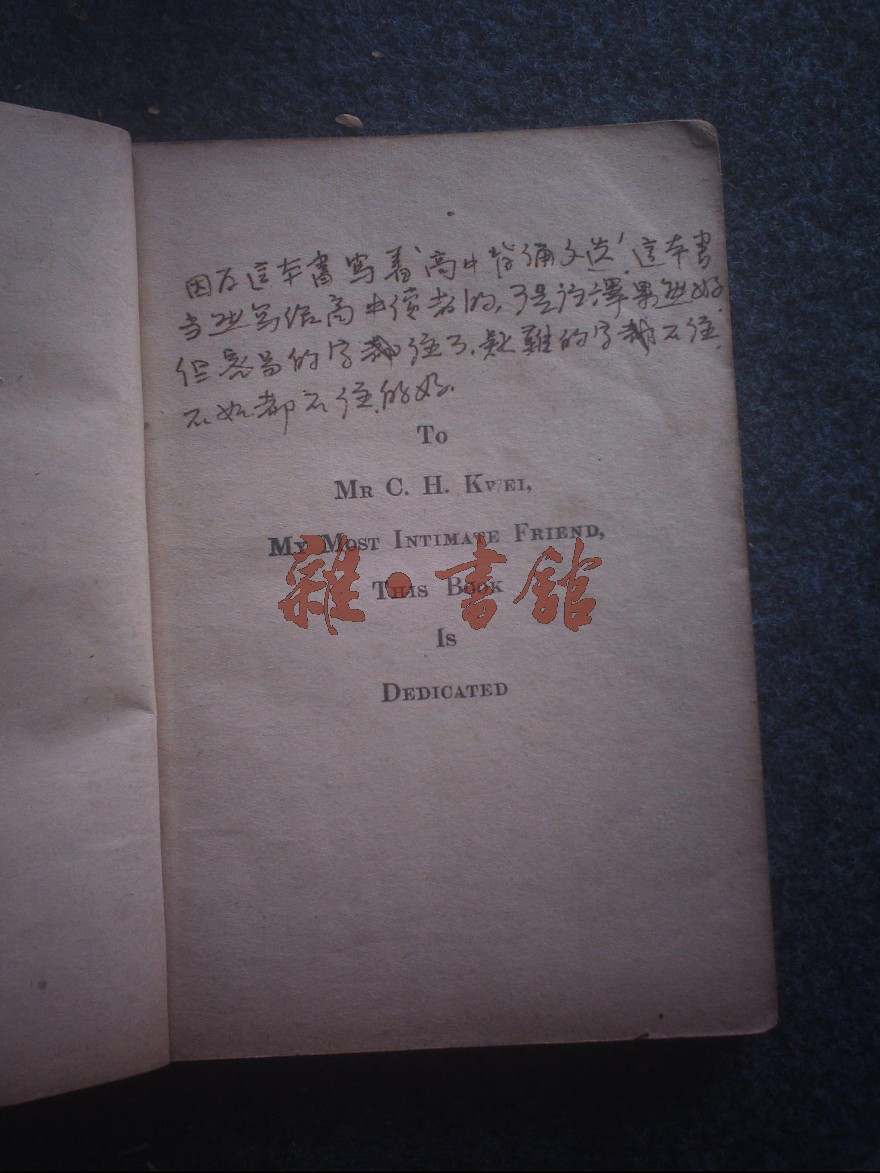 因为這本書寫着“高中背誦文选”這本書
当然写给高中读者的,于是注譯果然好.
但容易的字都注了,疑難的字都不注,
不如都不注的好.
To
MR C. H. KWEI,
MY MOST INTIMATE FRIEND,
THIS BOOK
IS
DEDICATED
雜·書館